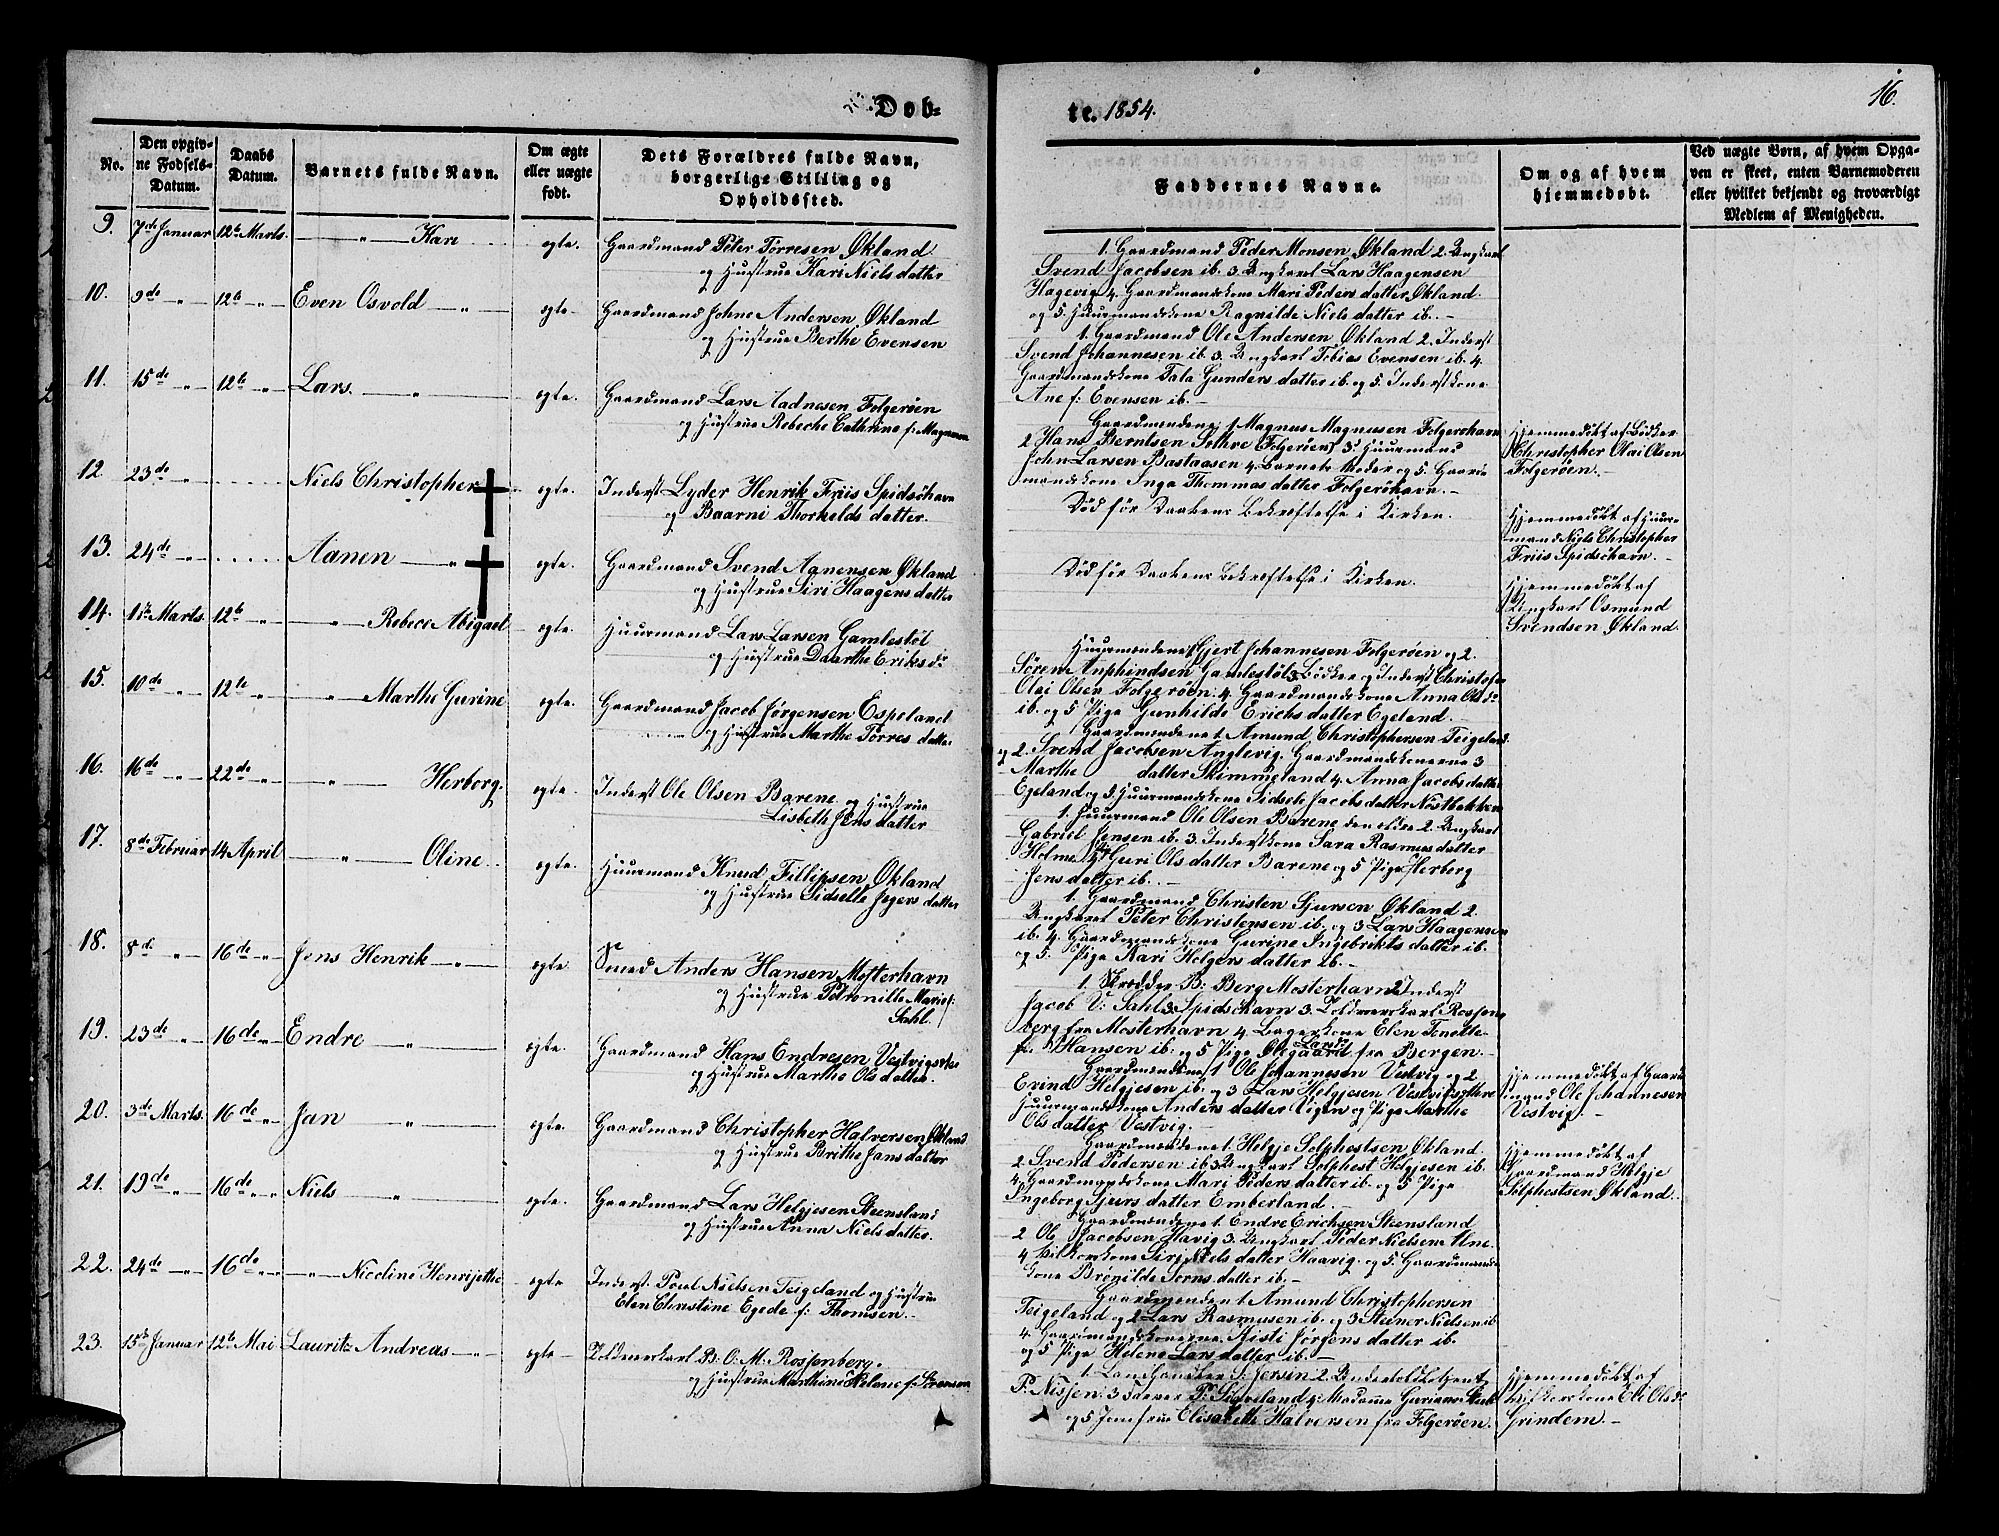 Döb=
te. 1854.
16.
No.
Den opgiv-
ne Fødsels-
Datum.
Daabs
Datum.
Barnets fulde Navn.
Om ægte
eller uægte
født.
Dets Forældres fulde Navn,
borgerlige Stilling og
Opholdssted.
Faddernes Navne.
Om og af hvem
hjemmedøbt.
Ved uægte Børn, af hvem Opga-
ven er skeet, enten Barnemoderen
eller hvilket bekjendt og troværdigt
Medlem af Menigheden.
9. 7de Januar 12te Marts. — " — Kari ægte. Gaardmand Peter Tørresen Økland
og Hustrue Kari Nielsdatter
1. Gaardmand Peder Monsen Økland 2. Ungkarl
Svend Jacobsen ib. 3. Ungkarl Lars Haagensen
Hagevig 4. Gaardmandskone Mari Pedersdatter Økland
og 5. Huusmandskone Ragnilde Nielsdatter ib. —
10. 9de " 12te " Even Osvold — " — ægte — Gaardmand Johne Andersen Økland
og Hustrue Berthe Evensen
1. Gaardmand Ole Andersen Økland 2. Inderst
Svend Johannesen ib. 3. Ungkarl Tobias Evensen ib. 4.
Gaardmandskone Tala Gundersdatter ib. og 5. Inderstkone
Ane f: Evensen ib. —
11. 15de " 12te " Lars. — " — ægte. Gaardmand Lars Aadnesen Folgerøen
og Hustrue Rebeche Cathrine f: Magnesen
Gaardmændene 1 Magnus Magnusen Folgerøhavn
2 Hans Berntsen Sethre (Folgerøen) 3. Huusmand
John Larsen Bastaasen 4. Barnets Moder og 5. Gaard-
mandskone Inga Thommasdatter Folgerøhavn. —
Hjemmedøbt af Bödker
Christopher Olai Olsen
Folgerøen. —
12. 23de " Niels Christopher ægte. Inderst Lyder Henrik Friis Spidsöhavn
og Baarni Thorkeldsdatter.
Död før Daabens Bekræftelse i Kirken.
Hjemmedøbt af Huus-
mand Niels Christopher
Friis Spidsöhavn. —
13. 24de " Aanen — " ægte. Gaardmand Svend Aanensen Økland
og Hustrue Siri Haagensdatter
Död før Daabens Bekræftelse i Kirken.
Hjemmedøbt af
Ungkarl Osmund
Svendsen Økland.
14. 1ste Marts. 12te " " — Rebece Abigael ægte. Huusmand Lars Larsen Gamlestöl
og Hustrue Daarthe Eriksdr
Huusmændene 1 Gjert Johannesen Folgerøen og 2.
Sören Anphindsen Gamlestöl 3 Bödker og Inderst Christofer
Olai Olsen Folgerøen. 4 Gaardmandskone Anna Olsdr
ib. og 5 Pige Gunhilde Erichsdatter Egeland. —
15. 10de " 12te " " — Marthe Gurine ægte. Gaardmand Jacob Jørgensen Espeland
og Hustrue Marthe Torresdatter
Gaardmændene 1 Amund Christophersen Teigeland
og 2. Svend Jacobsen Anglevig. Gaardmandskonerne 3
Marthe datter Skimmeland 4. Anna Jacobsdatter
Egeland og 5. Huusmandskone Sidsele Jacobsdatter Nöstbakken
16. 16de " 22de " " Herborg. ægte. Inderst Ole Olsen Barene og Hustrue
Lisbeth Jensdatter
1. Huusmand Ole Olsen Barene den ældre 2. Ungkarl
Gabriel Jensen ib. 3. Inderstkone Sara Rasmusdatter
Holme 4 Guri Olsdatter Barene og 5 Pige Herborg
Jensdatter ib. —
17. 8de Februar 14 April — " — Oline ægte. Huusmand Knud Fillipsen Økland
og Hustrue Sidselle Jegersdatter
1. Gaardmand Christen Sjursen Økland 2.
Ungkarl Peter Christensen ib. og 3 Lars Haagensen
ib. 4. Gaardmandskone Gurine Ingebriktsdatter ib.
og 5. Pige Kari Helgersdatter ib. —
18. 8de " 16de " Jens Henrik — " — ægte Smed Anders Hansen Mosterhavn
og Hustrue Petronille Marie f:
Sahl.
1. Skrædder B: Berg Mosterhavn 2 Inderst
Jacob V: Sahl Spidsöhavn 3. Toldværkarl Rossen-
berg fra Mosterhavn 4 Bagerkone Elen Tonette
f: Hansen ib. og 5 Pige Olegaard Larsd. fra Bergen. —
19. 23de " 16de " Endre " — ægte. Gaardmand Hans Endresen Vestvig
og Hustrue Marthe Olsdatter.
Gaardmændene 1 Ole Johannesen Vestvig og 2
Erind Helgjesen ib. og 3 Lars Helgjesen Vestvig
Huusmandskone Andersdatter Vigen og Pige Marthe
Olsdatter Vestvig. —
Hjemmedøbt af Gaard-
mand Ole Johannesen
Vestvig. —
20. 3de Marts. 16de " Jan " — ægte. Gaardmand Christopher Halversen Økland
og Hustrue Brithe Jansdatter
Gaardmændene 1. Helgje Solphestsen Økland.
2 Svend Pedersen ib 3 Ungkarl Solphest Helgjesen ib.
4. Gaardmandskone Mari Pedersdatter ib. og 5 Pige
Ingeborg Sjursdatter Emberland. —
Hjemmedøbt af
Gaardmand Helgje
Solphestsen Økland.
21. 19de " 16de " Niels " — ægte. Gaardmand Lars Helgjesen Steensland
og Hustrue Anna Nielsdatter.
Gaardmændene 1. Endre Erichsen Steensland
2 Ole Jacobsen Havig 3. Ungkarl Peder Nielsen Alne.
4 Siri Nielsdatter Haavig. og 5. Gaardmands-
kone Brönilde Sornsdatter ib. —
22. 24de " 16de " " — Nicoline Henrijethe ægte Inderst. Poul Nielsen Teigeland og Hustrue
Elen Christine Egede f: Thomsen. —
Gaardmændene 1 Amund Christophersen
Teigeland og 2 Lars Rasmusen ib. og 3 Steiner Nielsen ib
4. Gaardmandskonerne Aisti Jørgensdatter ib.
og 5 Pige Helene Larsdatter ib. —
23. 15de Januar 12te Mai Lauritz Andreas — " — ægte — Toldværkarl B: O: M: Rossenberg.
og Hustrue Marthine Helene f: Sörensen
1 Landhandler S: Jersin 2 Underlods
P: Nissen. 3 Farver P: Siqveland 4 Madamme Guriane
og 5 Jomfrue Elisabeth Halversen fra Folgerøen.
Hjemmedøbt af
Eli Olsdr
Grindem. —